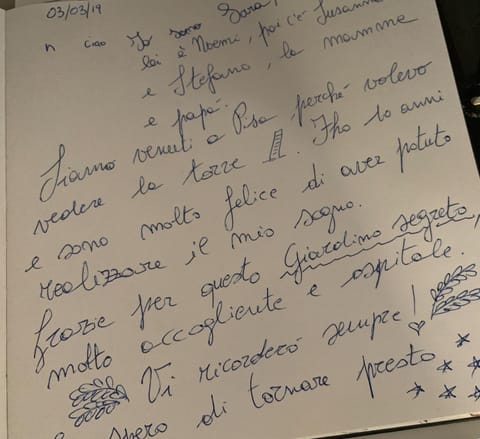 03/03/19
n ciao Io sono Sara,
lei è Noemi, poi c'è Susanna
e Stefano, la mamma
e papà.
Siamo venuti a Pisa perché volevo
vedere la torre. Ho 10 anni
e sono molto felice di aver potuto
realizzare il mio sogno.
Grazie per questo Giardino segreto,
molto accogliente e ospitale.
Vi ricorderò sempre!
e spero di tornare presto